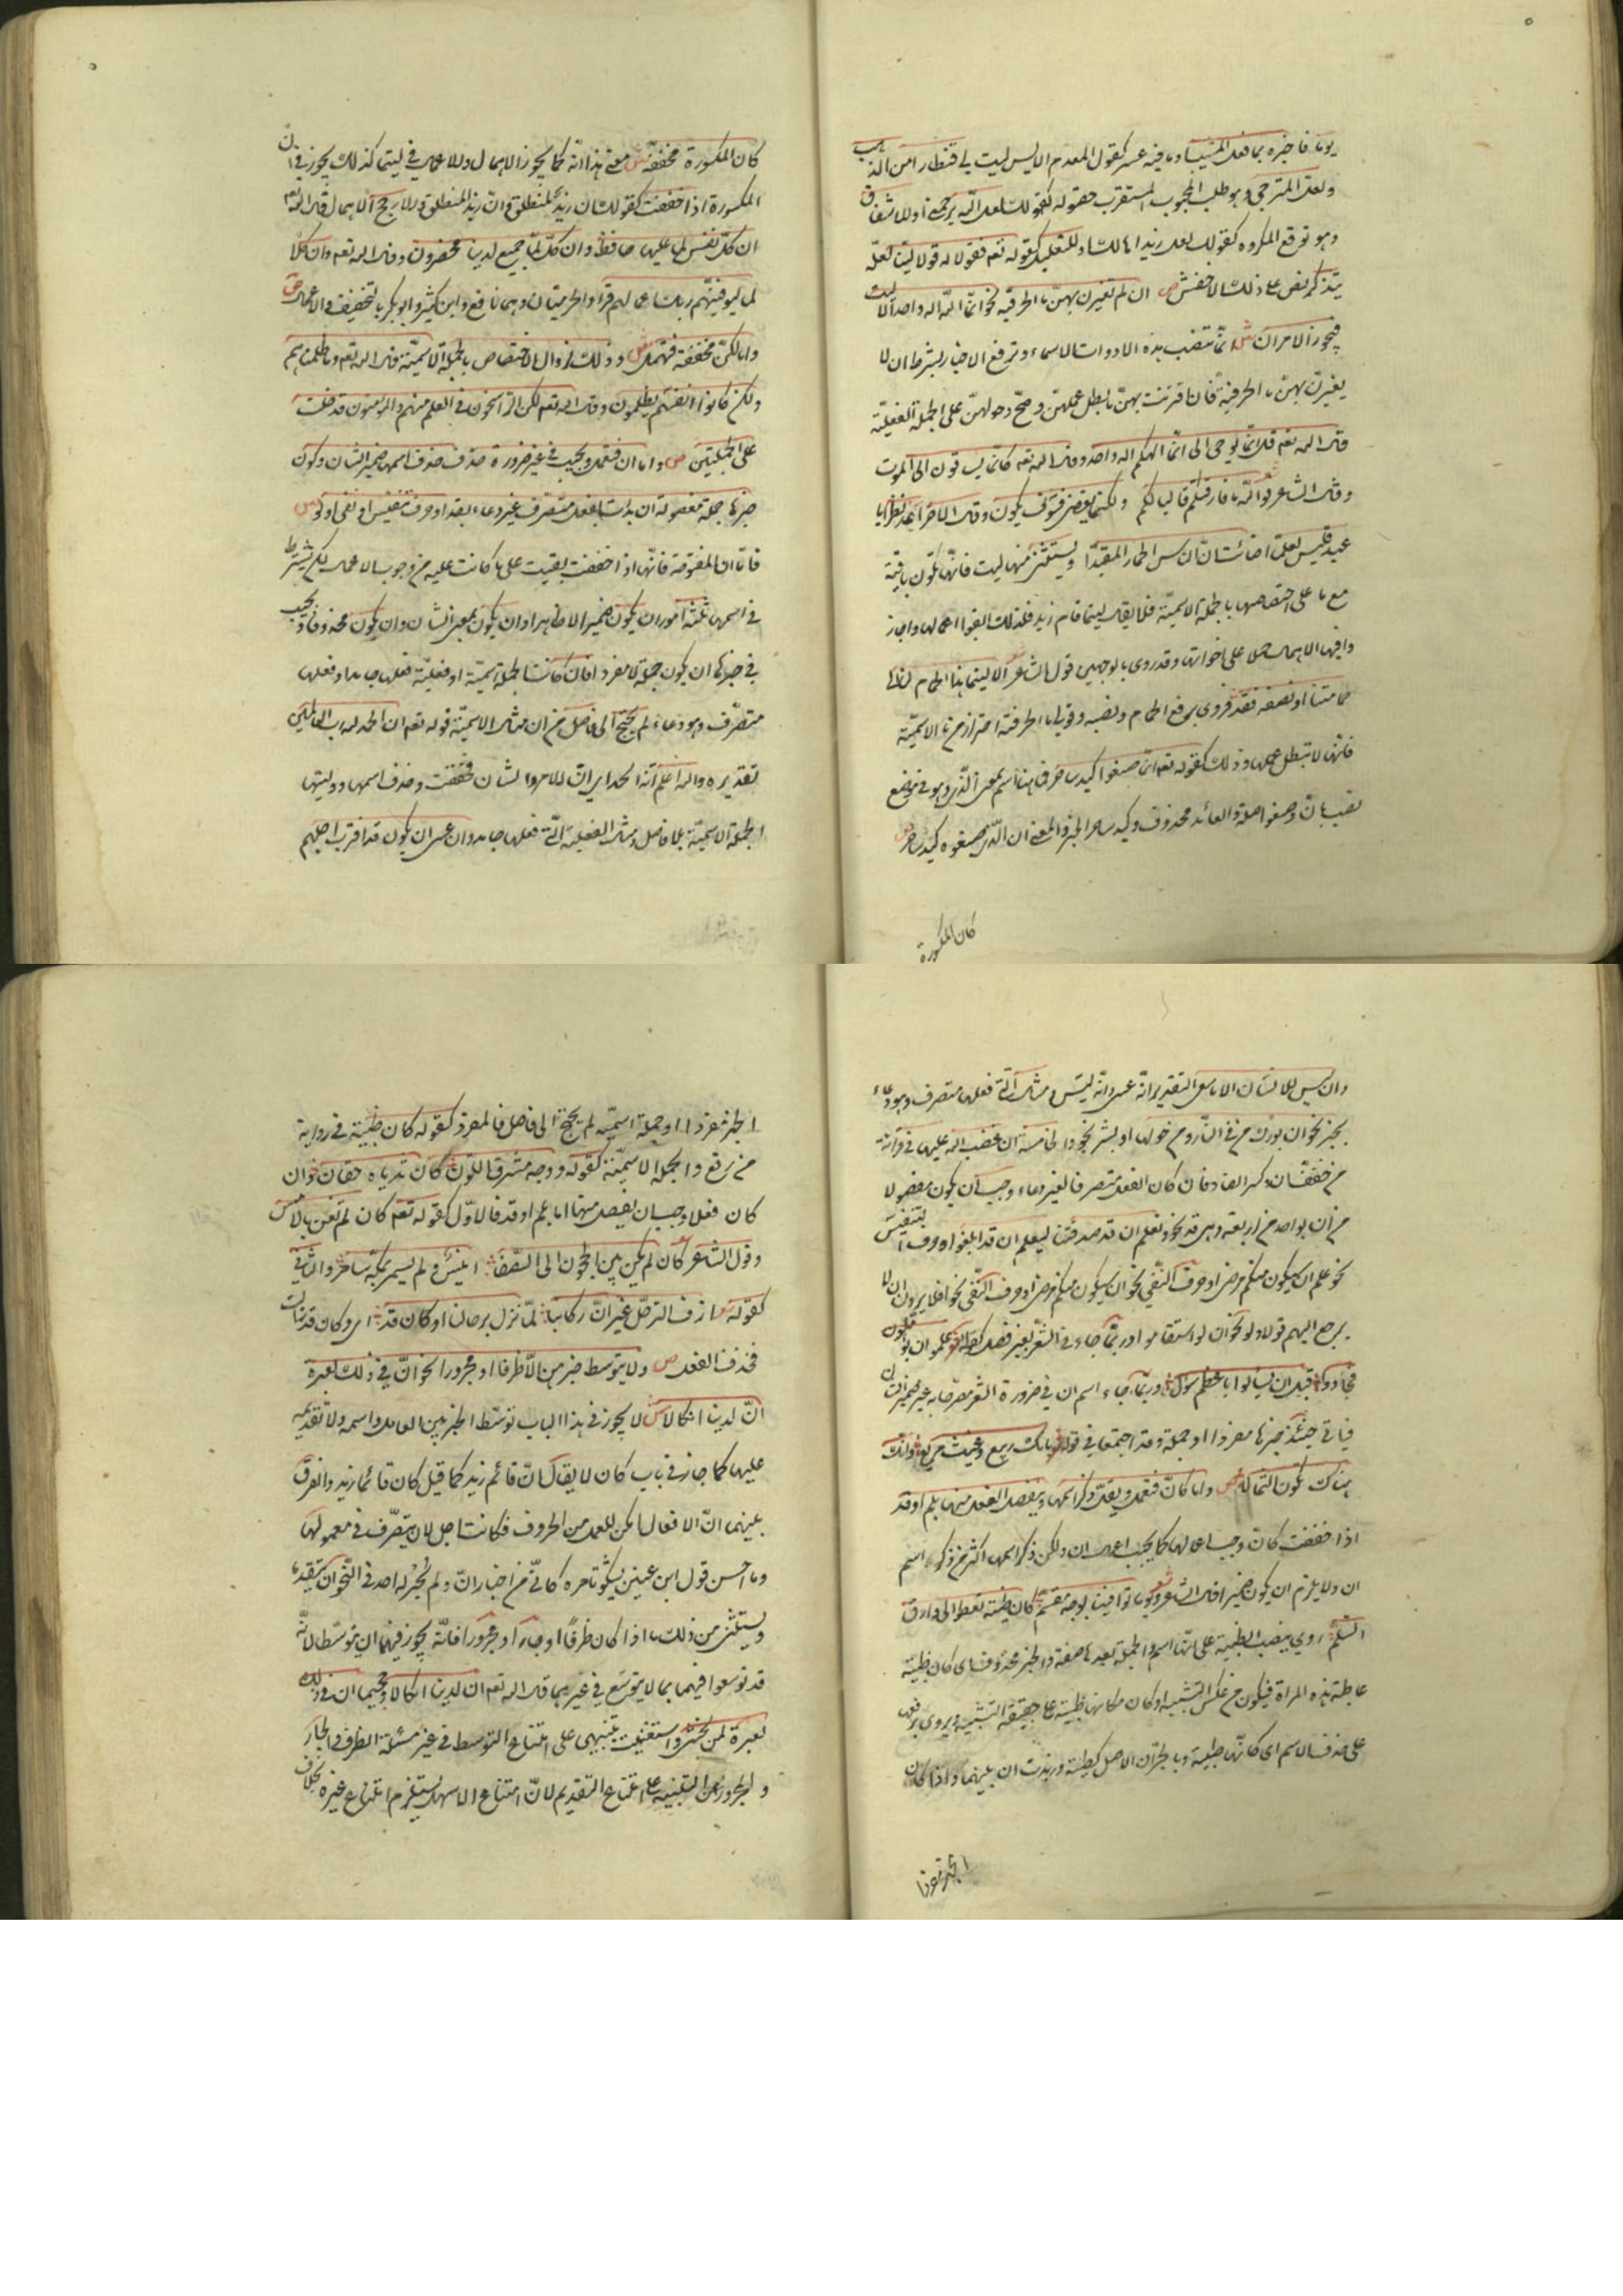 يوما فاخبره بما فعل المشيب او ما فيه عسر كقول المعدم الايس ليت لي قنطارا من الذهب
ولعل للترجي وهو طلب المحبوب المستقرب حصوله كقولك لعل الله يرحمني او للاشفاق
وهو توقع المكروه كقولك لعل زيدا هالك او للتعليل كقوله تعم فقولا له قولا لينا لعله
يتذكر نص على ذلك الاخفش ص ان لم تقترن بهن ما الحرفية نحو انما الله اله واحد الا ليت
فيجوز الامران ش انما تنصب هذه الادوات الاسماء وترفع الاخبار بشرط ان لا
يقترن بهن ما الحرفية فان اقترنت بهن ما بطل عملهن وصح دخولهن على الجملة الفعلية
قال الله تعم قل انما يوحى الي انما الهكم اله واحد وقال الله تعم كانما يساقون الى الموت
وقال الشاعر فوالله ما فارقتكم قاليا لكم ولكنما يقضى فسوف يكون وقال الاخر اعد نظرا يا
عبد قيس لعلما اضائت لك النار الحمار المقيدا ويستثنى منها ليت فانها تكون باقية
مع ما على اختصاصها بالجملة الاسمية فلا يقال ليتما قام زيد فلذلك ابقوا اعمالها واجازوا
فيها الاهمال حملا على اخواتها وقد روي بالوجهين قول الشاعر الا ليتما هذا الحمام لنا الى
حمامتنا او نصفه فقد فروي برفع الحمام ونصبه وقولي ما الحرفية احتراز من ما الاسمية
فانها لا تبطل عملها وذلك كقوله تعم انما صنعوا كيد ساحر فما هنا اسم بمعنى الذي وهو في موضع
نصب بان وصنعوا صلة والعائد محذوف وكيد ساحر الخبر والمعنى ان الذي صنعوه كيد ساحر ص
كان المكسورة
كان المكسورة مخففة ش معنى هذا انه كما يجوز الاهمال والاعمال في ليتما كذلك يجوز في ان
المكسورة اذا خففت كقولك ان زيد لمنطلق وان زيدا لمنطلق والارجح الاهمال قال الله تعم
ان كل نفس لما عليها حافظ وان كل لما جميع لدينا محضرون وقال الله تعم وان كلا
لما ليوفينهم ربك اعمالهم قرا الحرميان وهما نافع وابن كثير وابو بكر بالتخفيف والاعمال ص
واما لكن مخففة فتهمل ش وذلك لزوال الاختصاص بالجملة الاسمية قال الله تعم وما ظلمناهم
ولكن كانوا انفسهم يظلمون وقال الله تعم لكن الراسخون في العلم منهم والمؤمنون فدخلت
على الجملتين ص واما ان فتعمل ويجب في غير ضرورة حذف اسمها ضمير الشان وكون
خبرها جملة مفصولة ان بدئت بفعل متصرف غير دعاء بقد او حرف تنفيس او نفي او لو ش
فاما ان المفتوحة فانها اذا خففت بقيت على ما كانت عليه من وجوب الاعمال لكن يشترط
في اسمها ثلثة امور ان يكون ضميرا لا ظاهرا وان يكون بمعنى الشان وان يكون محذوفا ويجب
في خبرها ان يكون جملة لا مفردا فان كانت الجملة اسمية او فعلية فعلها جامد او فعلها
متصرف وهو دعاء لم يحتج الى فاصل من ان مثال الاسمية قوله تعم ان الحمد لله رب العالمين
تقديره والله اعلم انه الحمد اي ان الامر والشان فخففت وحذف اسمها ووليتها
الجملة الاسمية بلا فاصل ومثال الفعلية التي فعلها جامد وان عسى ان يكون قد اقترب اجلهم
وان ليس للانسان الا ما سعى التقدير انه عسى وانه ليس ومثال التي فعلها متصرف وهو دعاء
بخير نحو ان بورك من في النار ومن حولها او بشر نحو والخامسة ان غضب الله عليها في قراءة
من خفف ان وكسر الضاد فان كان الفعل متصرفا لغير دعاء وجب ان يكون مفصولا
من ان بواحد من اربعة وهي قد نحو ونعلم ان قد صدقتنا ليعلم ان قد ابلغوا او حرف التنفيس
نحو علم ان سيكون منكم مرضى او حرف النفي نحو افلا يرون ان لا
يرجع اليهم قولا ولو نحو ان لو استقاموا وربما جاء في الشعر بغير فصل كقوله علموا ان يؤملون
فجادوا قبل ان يسالوا باعظم سؤل وربما جاء اسم ان في ضرورة الشعر مصرحا به غير ضمير الشان
فياتي حينئذ خبرها مفردا او جملة وقد اجتمعا في قوله بانك ربيع وغيث مريع وانك
هناك تكون الثمالا ص واما كان فتعمل ويقل ذكر اسمها ويفصل الفعل منها بلم او قد
اذا خففت كان وجب اعمالها كما يجب اعمال ان ولكن ذكر اسمها اكثر من ذكر اسم
ان ولا يلزم ان يكون ضميرا قال الشاعر ويوما توافينا بوجه مقسم كان ظبية تعطو الى وارق
السلم روي بنصب الظبية على انها اسم والجملة بعدها صفة والخبر محذوف اي كان ظبية
عاطية هذه المراة فيكون من عكس التشبيه او كان مكانها ظبية على حقيقة التشبيه ويروى برفعها
على حذف الاسم اي كانها ظبية وبالجر ان الاصل كظبية وزيدت ان بينهما واذا كان
الخبر مفردا
الخبر مفردا او جملة اسمية لم يحتج الى فاصل فالمفرد كقوله كان ظبية في رواية
من رفع والجملة الاسمية كقوله ووجه مشرق اللون كان ثدياه حقان وان
كان فعلا وجب ان يفصل منها اما بلم او قد فالاول كقوله تعم كان لم تغن بالامس
وقول الشاعر كان لم يكن بين الحجون الى الصفا انيس ولم يسمر بمكة سامر والثاني
كقوله ازف الترحل غير ان ركابنا لما تزل برحالنا وكان قد اي وكان قد زالت
فحذف الفعل ص ولا يتوسط خبرهن الا ظرفا او مجرورا نحو ان في ذلك لعبرة
ان لدينا انكالا ش لا يجوز في هذا الباب توسط الخبر بين العامل واسمه ولا تقديمه
عليها كما جاز في باب كان لا يقال ان قائم زيد كما قيل كان قائما زيد والفرق
بينهما ان الافعال امكن للعمل من الحروف فكانت احمل لان يتصرف في معمولها
وما احسن قول ابن عنين يشكو تاخره كاني من اخبار ان ولم يجز له احد في النحو ان يتقدما
ويستثنى من ذلك ما اذا كان ظرفا او جارا ومجرورا فانه يجوز فيهما ان يتوسطا لانه
قد توسعوا فيهما بما لا يتوسع في غيرهما قال الله تعم ان لدينا انكالا وجحيما ان في ذلك
لعبرة لمن يخشى واستغنيت بتنبيهي على امتناع التوسط في غير مسئلة الظرف والجار
والمجرور عن التنبيه على امتناع التقديم لان امتناع الاسهل يستلزم امتناع غيره بخلاف